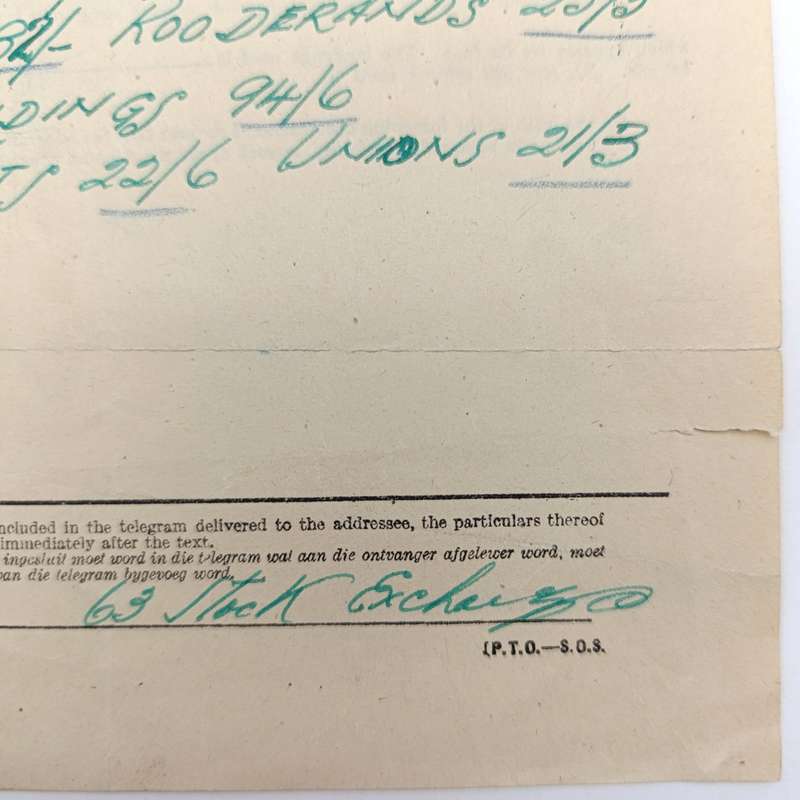 82/- ROODERANDS 23/3
DINGS 94/6
TS 22/6 UNIONS 21/3
ncluded in the telegram delivered to the addressee, the particulars thereof
immediately after the text.
ingesluit moet word in die telegram wat aan die ontvanger afgelewer word, moet
van die telegram bygevoeg word.
63 Stock Exchange
(P.T.O.—S.O.S.